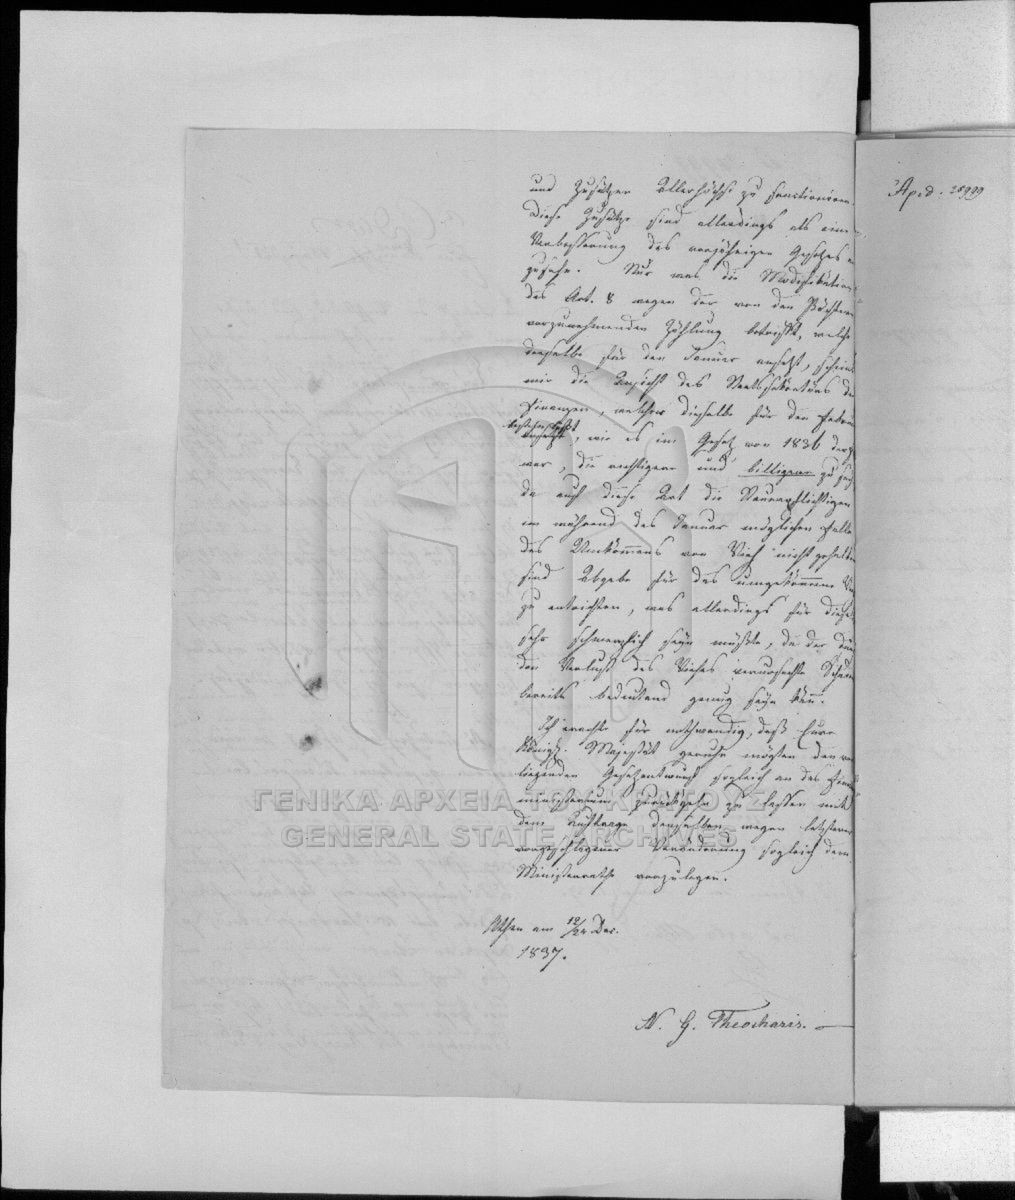 und Zusätzen Allerhöchst zu sanctioniren.
Diese Zusätze sind allerdings als eine
Verbesserung des vorjährigen Gesetzes
zusehn. Nur was die Modifikation
des Art. 8 wegen der von den Pächtern
vorzunehmenden Zählung betrifft, welche
derselbe für den Januar ansetzt, scheint
mir die Ansicht des Staatssekretärs der
Finanzen, welcher dieselbe für den Februar
, wie es im Gesetz von 1836 der
war, die richtigere und billigere zu seyn
da auf diese Art die Steuerpflichtigen
im während des Januar möglichen Falle
des Umkommens von Vieh nicht gehalten
sind Abgabe für das umgekommene
zu entrichten, was allerdings für diese
sehr schmerzlich seyn müßte, da der
den Verlust des Viehes verursachte Schaden
bereits bedeutend genug seyn kann.
Ich erachte für nothwendig, daß Eure
Königl. Majestät geruhen möchten den
liegenden Gesetzentwurf sogleich an das Finanz
ministerium zurückgehn zu lassen mit
dem Auftrage denselben wegen letzterer
vorgeschlagener Veränderung sogleich dem
Ministerrathe vorzulegen.
Athen am 12/24 Dec.
1837.
N. G. Theocharis.
Αριθ. 25999
ΓΕΝΙΚΑ ΑΡΧΕΙΑ ΤΟΥ ΚΡΑΤΟΥΣ
GENERAL STATE ARCHIVES